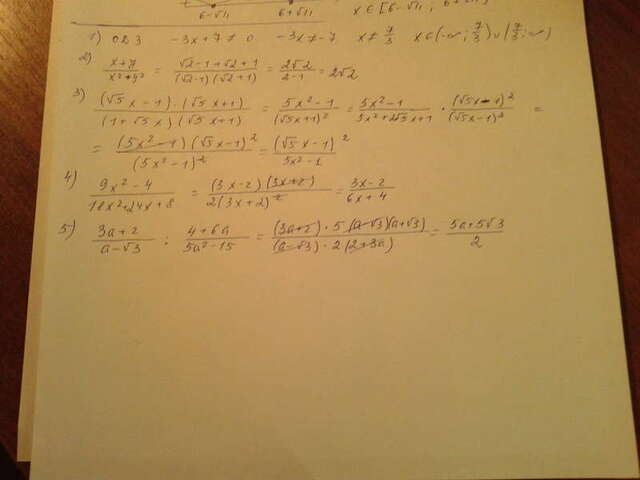 6-√11 6+√11 x ∈ [6-√11 ; 6+√11]
1) ОДЗ -3x+7 ≠ 0 -3x ≠ -7 x ≠ 7/3 x ∈ (-∞ ; 7/3) ∪ (7/3 ; ∞)
2) = (√2-1+√2+1)/((√2-1)(√2+1)) = 2√2/(2-1) = 2√2
3) ((√5x-1)·(√5x+1))/((1+√5x)(√5x+1)) = (5x²-1)/(√5x+1)² = (5x²-1)/(5x²+2√5x+1) · (√5x-1)²/(√5x-1)² =
= ((5x²-1)(√5x-1)²)/(5x²-1)² = (√5x-1)²/(5x²-1)
4) (9x²-4)/(18x²+24x+8) = ((3x-2)(3x+2))/(2(3x+2)²) = (3x-2)/(6x+4)
5) (3a+2)/(a-√3) : (4+6a)/(5a²-15) = ((3a+2)·5(a-√3)(a+√3))/((a-√3)·2(2+3a)) = (5a+5√3)/2